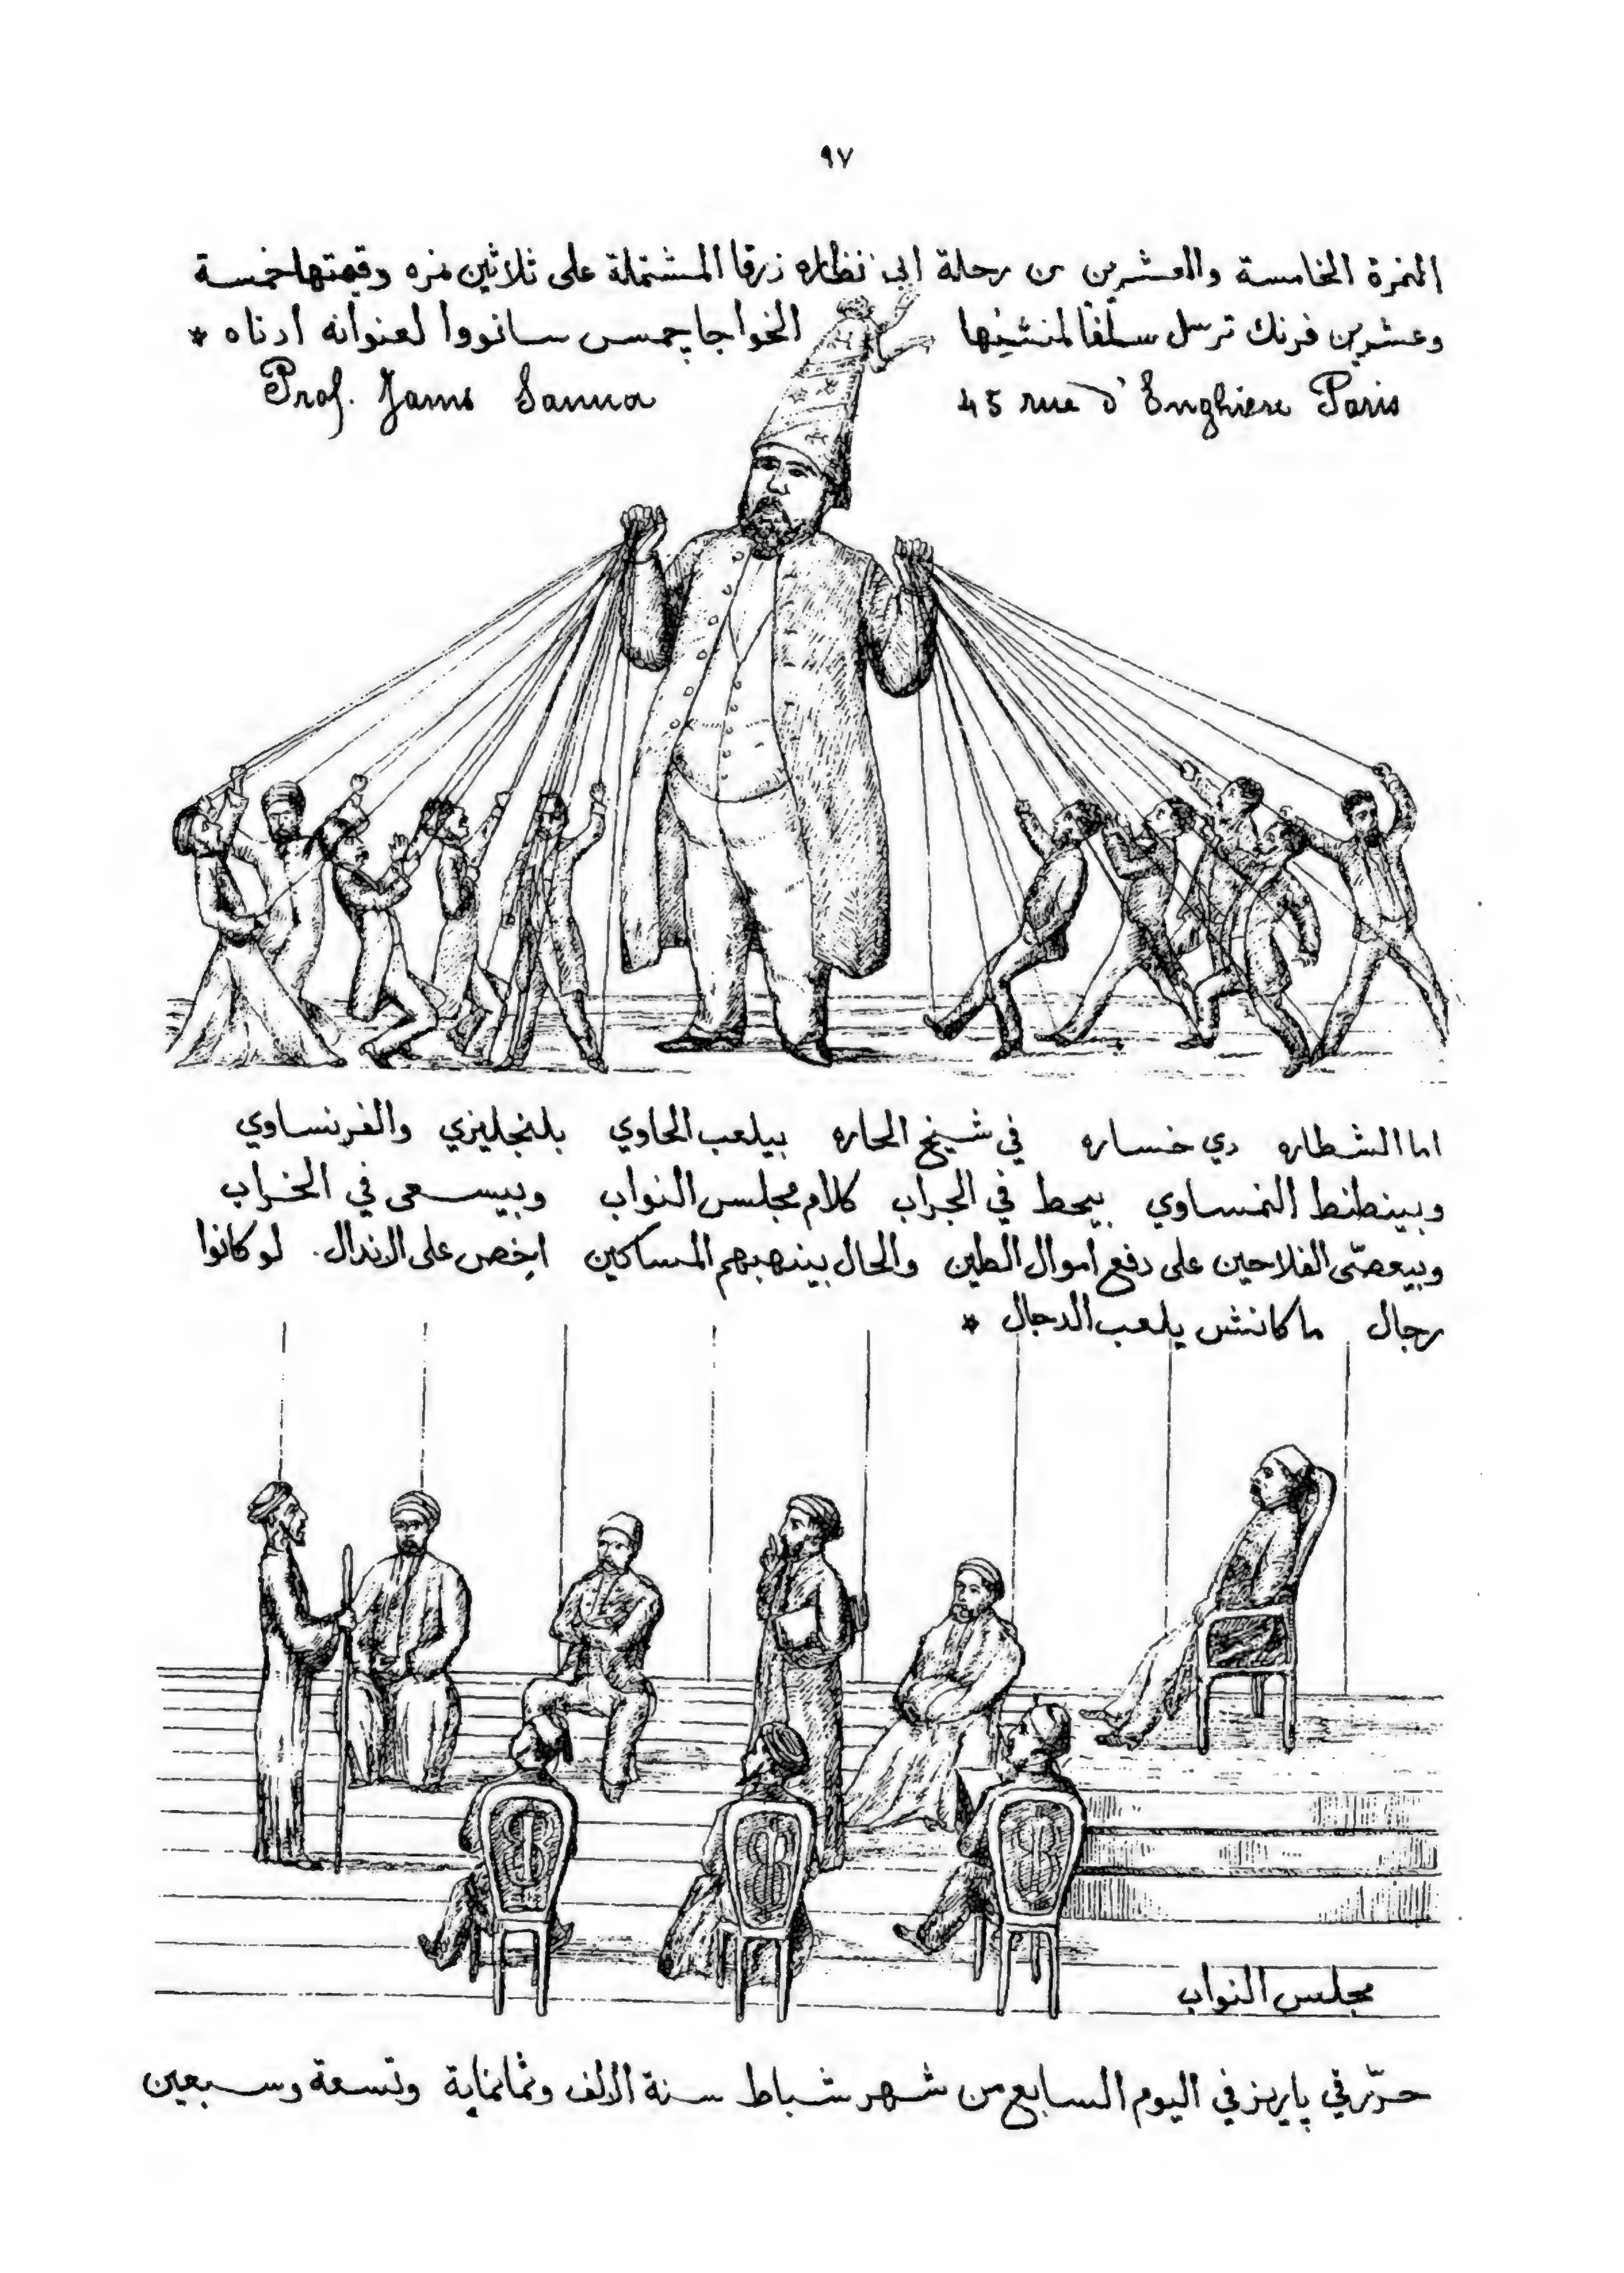 ٩٧
النمرة الخامسة والعشرين من رحلة ابى نظاره زرقا المشتملة على ثلاثين نمره وقيمتها خمسة
وعشرين فرنك ترسل سلفًا لمنشئها الخواجا چمس سانووا لعنوانه ادناه *
Prof. James Sanua 45 rue d'Enghiere Paris
اما الشطاره دي خساره في شيخ الحاره بيلعب الحاوي بلنجليزي والفرنساوي
وبينطنط النمساوي بيحط في الجراب كلام مجلس النواب وبيسعى في الخراب
وبيعصّى الفلاحين على دفع اموال الطين والحال بينهبهم المساكين اخص على الاندال. لو كانوا
رجال ما كانش يلعب الدجال *
مجلس النواب
حرّر في پاريز في اليوم السابع من شهر شباط سنة الالف وثمانماية وتسعة وسبعين